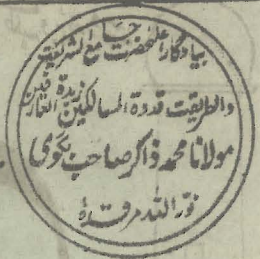 بیادگار اعلیٰحضرت جامع الشریعت
والطریقت قدوة السالکین زبدة العارفین
مولانا محمد ذاکر صاحب بگوی
نور اللہ مرقدہٗ